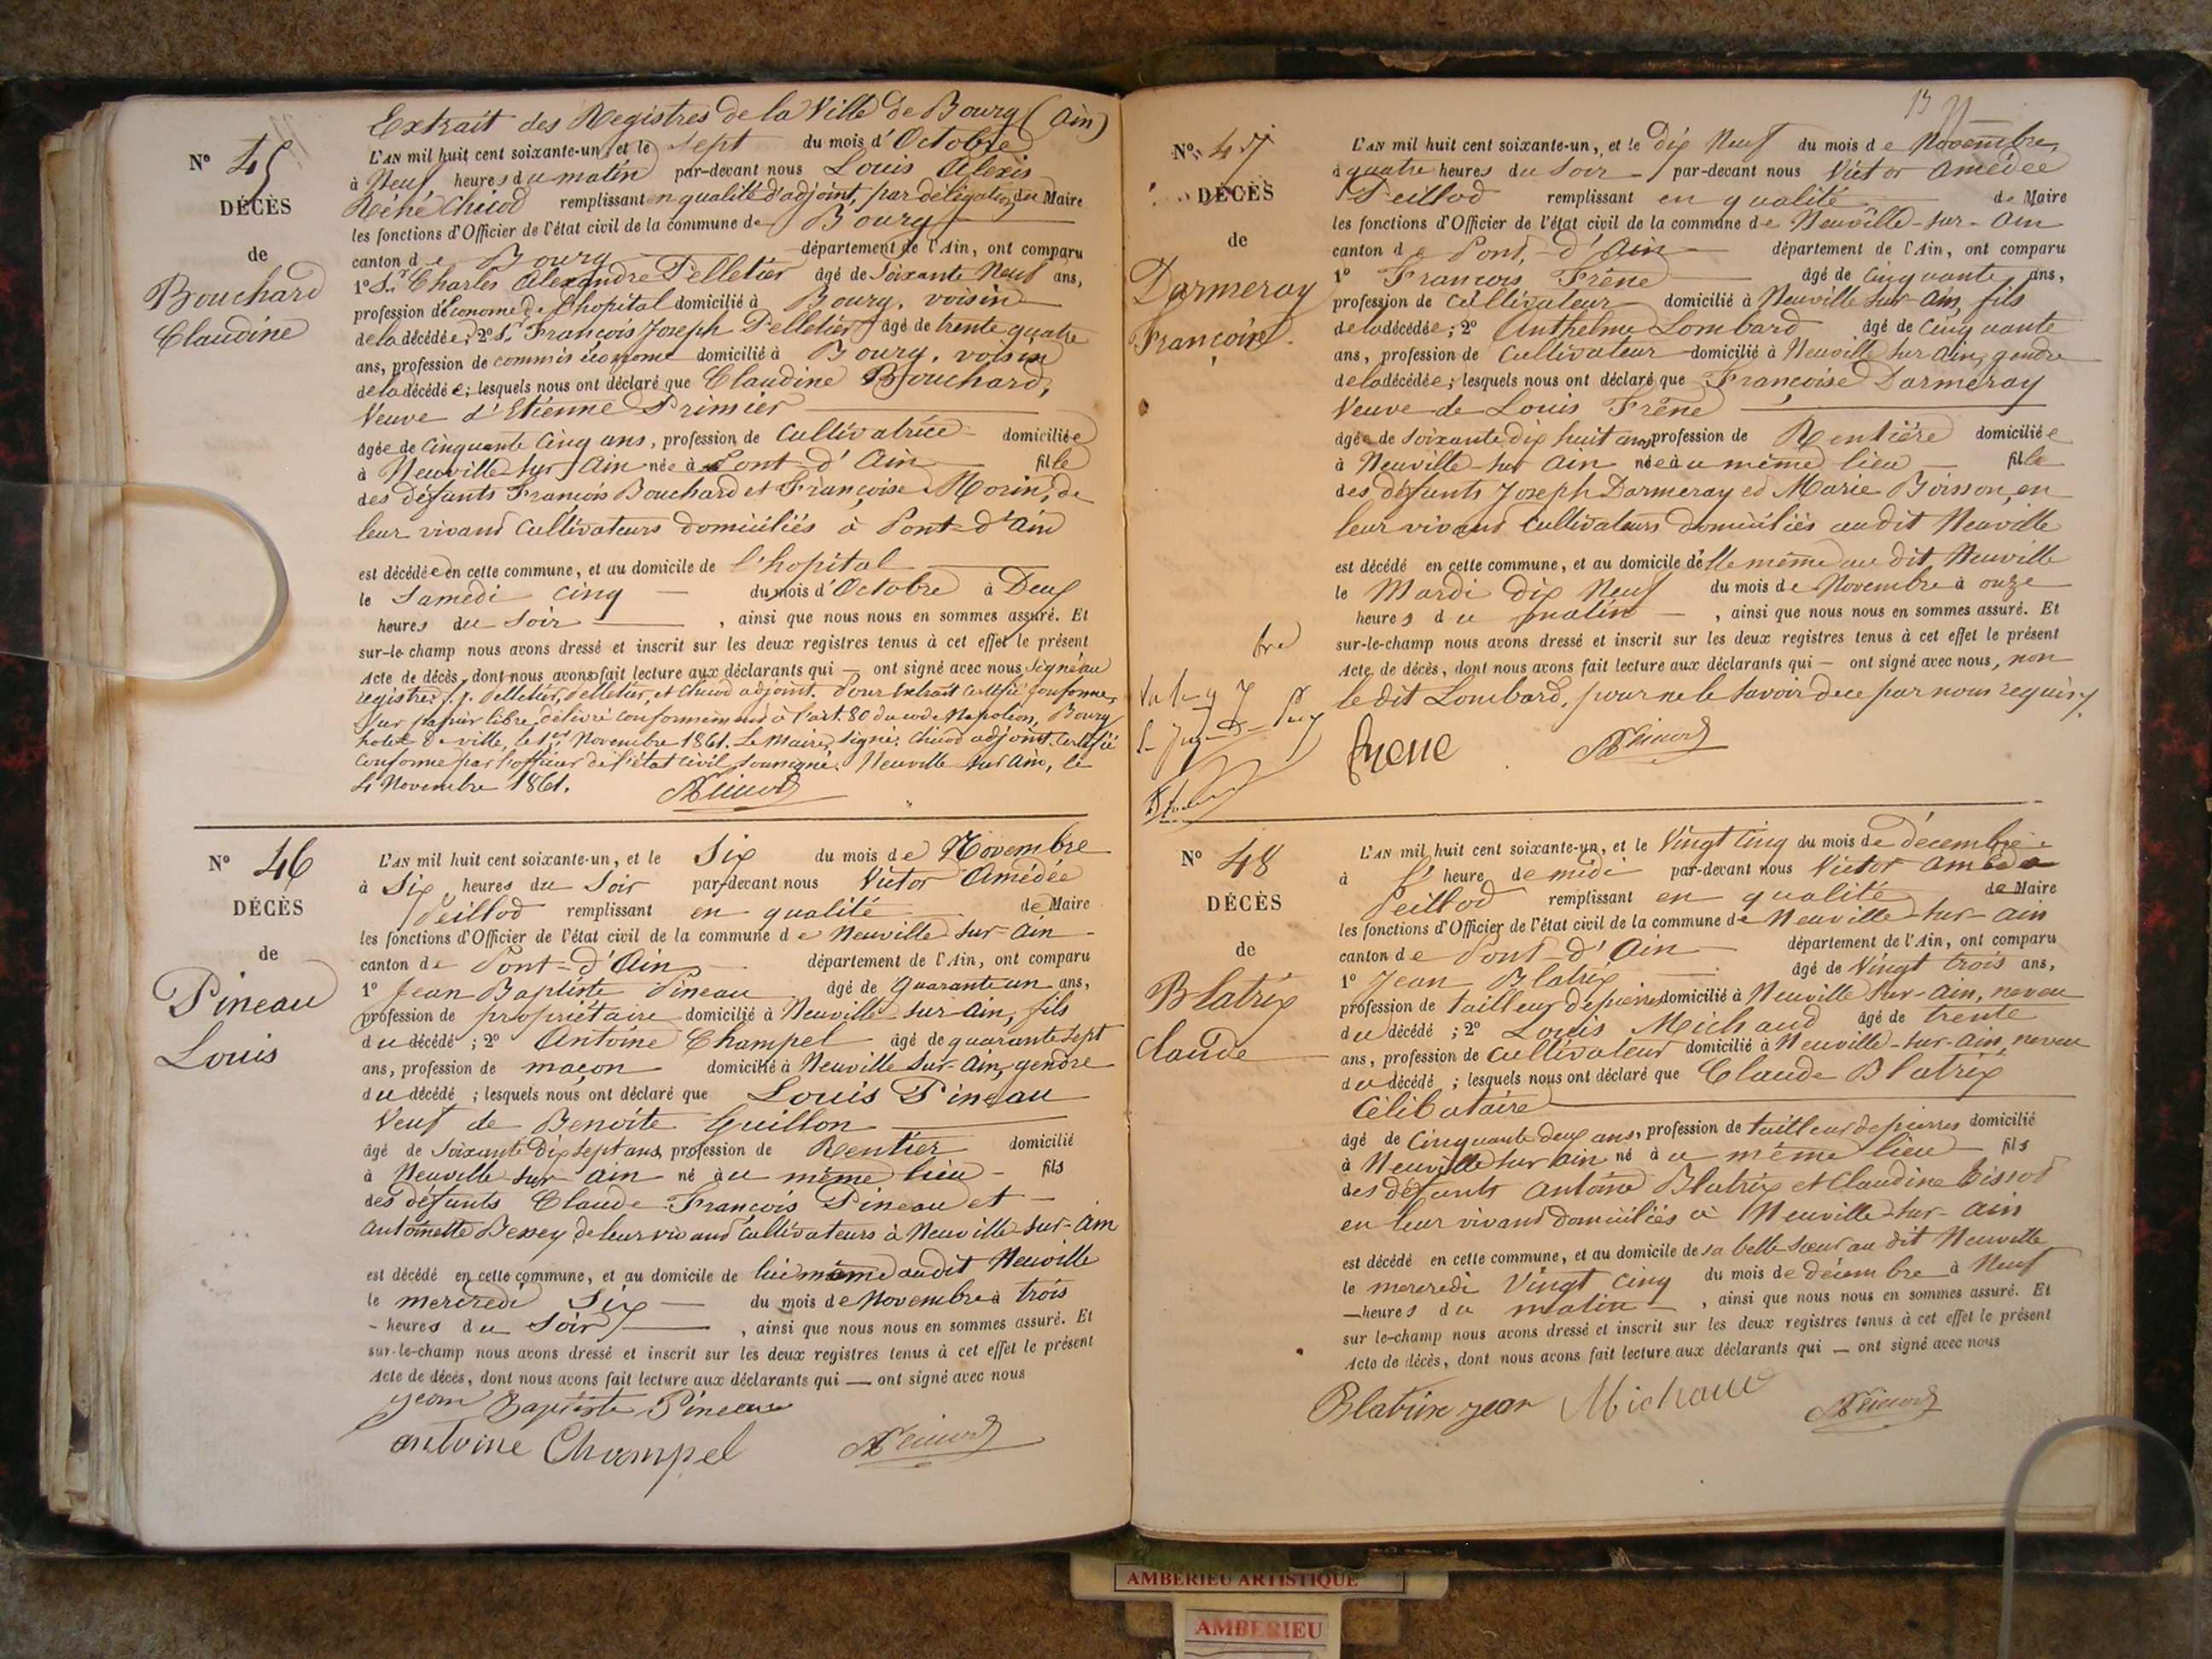 Extrait des Registres de la Ville de Bourg (Ain)
N° 45
DÉCÈS
de
Bouchard
Claudine
L'AN mil huit cent soixante-un, et le sept du mois d'Octobre
à Neuf heures du matin par-devant nous Louis Alexis
Réné Chicod remplissant en qualité d'adjoint, par délégation du Maire
les fonctions d'Officier de l'état civil de la commune de Bourg
canton de Bourg département de l'Ain, ont comparu
1° Sr Charles Alexandre Pelletier âgé de Soixante Neuf ans,
profession d'économe de l'hopital domicilié à Bourg, voisin
de la décédée; 2° Sr François Joseph Pelletier âgé de trente quatre
ans, profession de commis économe domicilié à Bourg, voisin
de la décédée; lesquels nous ont déclaré que Claudine Bouchard,
Veuve d'Etienne Primier
âgée de Cinquante Cinq ans, profession de Cultivatrice domiciliée
à Neuville sur Ain née à Pont-d'Ain fille
des défunts François Bouchard et Françoise Morin, de
leur vivant Cultivateurs domiciliés à Pont-d'Ain
est décédée en cette commune, et au domicile de l'hopital
le Samedi cinq du mois d'Octobre à Deux
heures du Soir, ainsi que nous nous en sommes assuré. Et
sur-le-champ nous avons dressé et inscrit sur les deux registres tenus à cet effet le présent
Acte de décès, dont nous avons fait lecture aux déclarants qui — ont signé avec nous Signé au
registre: J. J. Pelletier, Pelletier, et Chicod adjoint. Pour Extrait certifié conforme,
Sur papier libre délivré conformément à l'art. 80 du code Napoléon, Bourg
hotel de ville, le 1er Novembre 1861. Le Maire, Signé: Chicod adjoint. Certifié
Conforme par l'officier de l'état civil soussigné. Neuville sur Ain, le
4 Novembre 1861.
N° 46
DÉCÈS
de
Pineau
Louis
L'AN mil huit cent soixante-un, et le Six du mois de Novembre
à Six heures du Soir par-devant nous Victor Amédée
Peillod remplissant en qualité de Maire
les fonctions d'Officier de l'état civil de la commune de Neuville sur-Ain
canton de Pont-d'Ain département de l'Ain, ont comparu
1° Jean Baptiste Pineau âgé de Quarante un ans,
profession de propriétaire domicilié à Neuville-sur-Ain, fils
du décédé; 2° Antoine Champel âgé de quarante sept
ans, profession de maçon domicilié à Neuville sur-Ain, gendre
du décédé; lesquels nous ont déclaré que Louis Pineau
Veuf de Benoite Guillon
âgé de Soixante Dix Sept ans, profession de Rentier domicilié
à Neuville-sur-Ain né au même lieu - fils
des défunts Claude-François Pineau et —
Antoinette Bessey de leur vivant Cultivateurs à Neuville-sur-Ain
est décédé en cette commune, et au domicile de lui même au dit Neuville
le mercredi Six du mois de Novembre à trois
- heures du Soir, ainsi que nous nous en sommes assuré. Et
sur-le-champ nous avons dressé et inscrit sur les deux registres tenus à cet effet le présent
Acte de décès, dont nous avons fait lecture aux déclarants qui — ont signé avec nous
Jean Baptiste Pineau
antoine Champel
13
N° 47
DÉCÈS
de
Darmeray
Françoise
L'AN mil huit cent soixante-un, et le dix Neuf du mois de Novembre,
à quatre heures du Soir par-devant nous Victor Amédée
Peillod remplissant en qualité de Maire
les fonctions d'Officier de l'état civil de la commune de Neuville-sur-Ain
canton de Pont-d'Ain département de l'Ain, ont comparu
1° François Frêne âgé de Cinquante ans,
profession de Cultivateur domicilié à Neuville sur-Ain, fils
de la décédée; 2° Anthelme Lombard âgé de Cinquante
ans, profession de Cultivateur domicilié à Neuville sur Ain, gendre
de la décédée; lesquels nous ont déclaré que Françoise Darmeray
Veuve de Louis Frêne
âgée de Soixante dix huit ans, profession de Rentière domiciliée
à Neuville-sur Ain née au même lieu fille
des défunts Joseph Darmeray et Marie Boisson, en
leur vivant Cultivateurs domiciliés au dit Neuville
est décédé en cette commune, et au domicile d'elle même au dit Neuville
le Mardi dix Neuf du mois de Novembre à onze
heures du matin, ainsi que nous nous en sommes assuré. Et
sur-le-champ nous avons dressé et inscrit sur les deux registres tenus à cet effet le présent
Acte de décès, dont nous avons fait lecture aux déclarants qui — ont signé avec nous, non
le dit Lombard, pour ne le savoir de ce par nous requis.
frene
N° 48
DÉCÈS
de
Blatrix
Claude
L'AN mil huit cent soixante-un, et le Vingt Cinq du mois de décembre
à l'heure de midi par-devant nous Victor Amédée
Peillod remplissant en qualité de Maire
les fonctions d'Officier de l'état civil de la commune de Neuville-sur-Ain
canton de Pont-d'Ain département de l'Ain, ont comparu
1° Jean Blatrix âgé de Vingt trois ans,
profession de tailleur de pierres domicilié à Neuville sur-Ain, neveu
du décédé; 2° Louis Michaud âgé de trente
ans, profession de Cultivateur domicilié à Neuville-sur-Ain, neveu
du décédé; lesquels nous ont déclaré que Claude Blatrix
Célibataire
âgé de Cinquante deux ans, profession de tailleur de pierres domicilié
à Neuville sur Ain né au même lieu fils
des défunts Antoine Blatrix et Claudine Tissot
en leur vivant domiciliés à Neuville-sur-Ain
est décédé en cette commune, et au domicile de sa belle sœur au dit Neuville
le mercredi Vingt cinq du mois de décembre à Neuf
— heures du matin, ainsi que nous nous en sommes assuré. Et
sur le-champ nous avons dressé et inscrit sur les deux registres tenus à cet effet le présent
Acte de décès, dont nous avons fait lecture aux déclarants qui — ont signé avec nous
Blatrix jean Michaud
AMBERIEU ARTISTIQUE
AMBERIEU